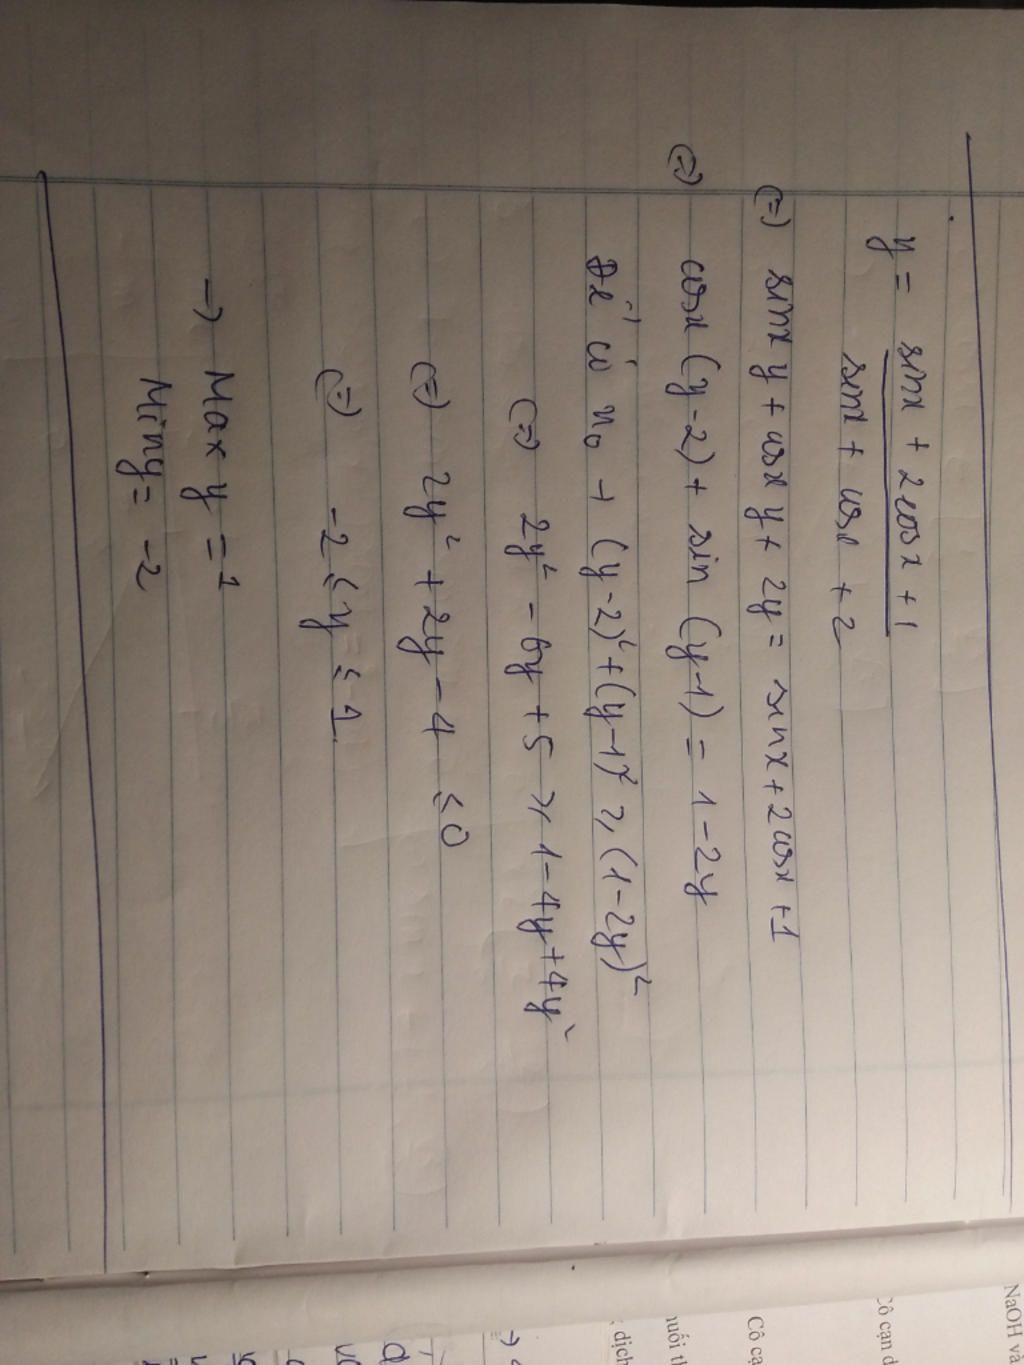 y = sinx + 2cosx + 1
sinx + cosx + 2
(=) sinx y + cosx y + 2y = sinx + 2cosx + 1
(=) cosx (y-2) + sin (y-1) = 1 - 2y
Để có n₀ → (y-2)² + (y-1)² ≥ (1-2y)²
(=) 2y² - 6y + 5 ≥ 1 - 4y + 4y²
(=) 2y² + 2y - 4 ≤ 0
(=) -2 ≤ y ≤ 1.
→ Max y = 1
Min y = -2
NaOH và
Cô cạn d
Cô cạ
muối th
dịch